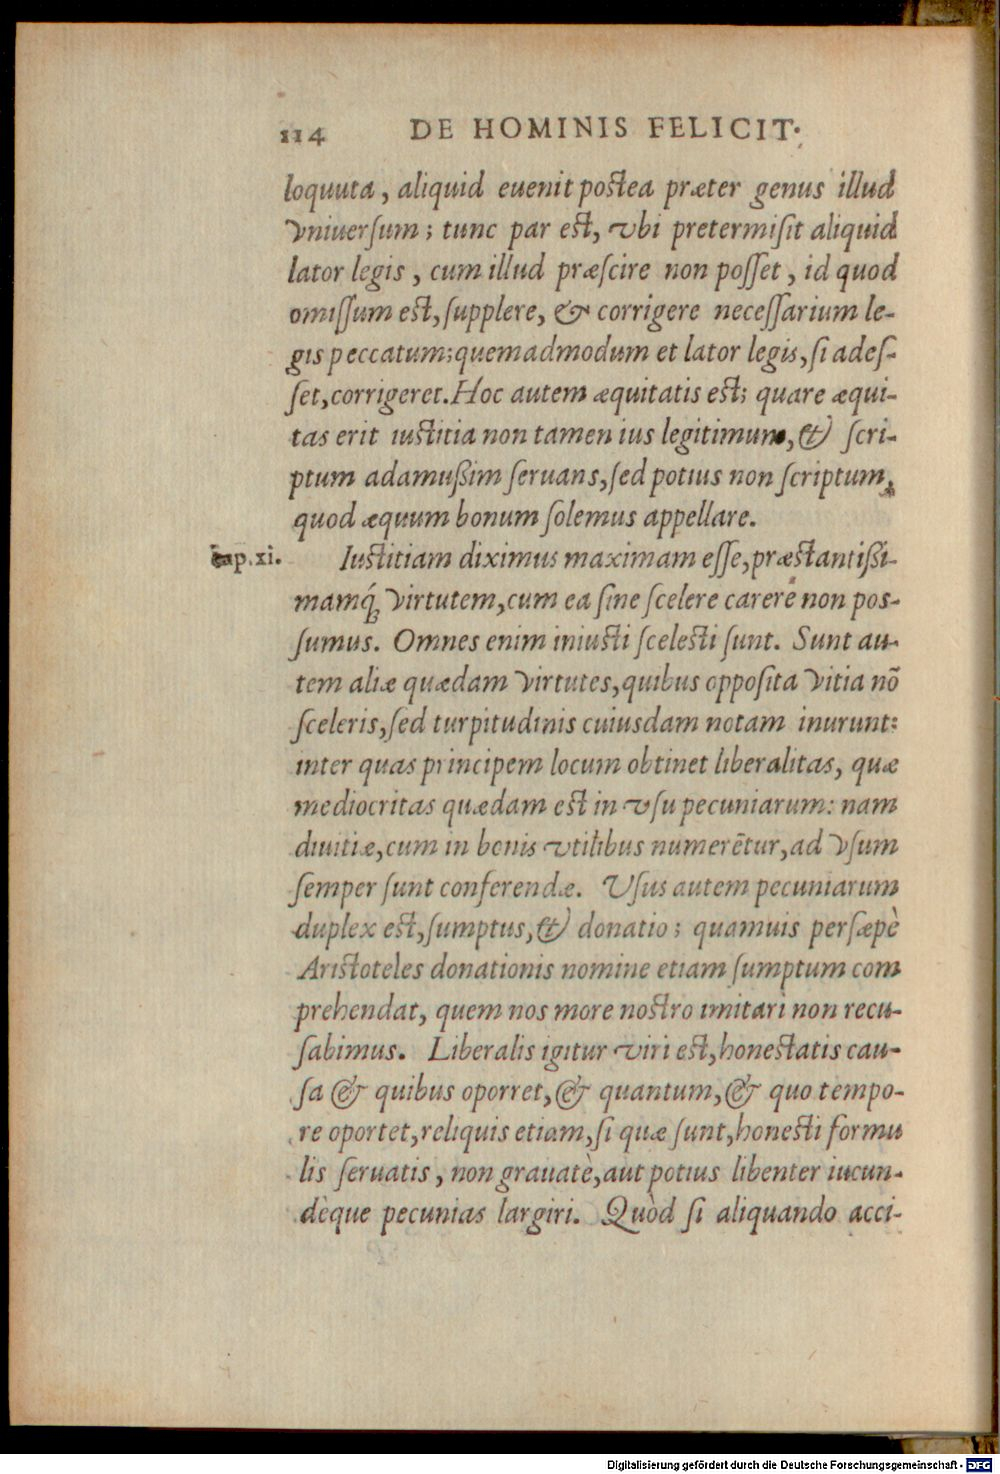 114 DE HOMINIS FELICIT.
loquuta, aliquid euenit postea præter genus illud
vniuerſum; tunc par est, vbi pretermiſit aliquid
lator legis, cum illud præſcire non poſſet, id quod
omiſſum est, ſupplere, & corrigere neceſſarium le-
gis peccatum; quemadmodum et lator legis, ſi adeſ-
ſet, corrigeret. Hoc autem æquitatis est; quare æqui-
tas erit iustitia non tamen ius legitimum, & ſcri-
ptum adamußim ſeruans, ſed potius non ſcriptum,
quod æquum bonum ſolemus appellare.
Cap. xi. Iustitiam diximus maximam eſſe, præstantißi-
mamq́; virtutem, cum ea ſine ſcelere carere non pos-
ſumus. Omnes enim iniusti ſcelesti ſunt. Sunt au-
tem aliæ quædam virtutes, quibus oppoſita vitia nõ
ſceleris, ſed turpitudinis cuiusdam notam inurunt:
inter quas principem locum obtinet liberalitas, quæ
mediocritas quædam est in vſu pecuniarum: nam
diuitiæ, cum in bonis vtilibus numerẽtur, ad vſum
ſemper ſunt conferendæ. Vſus autem pecuniarum
duplex est, ſumptus, & donatio; quamuis perſæpè
Aristoteles donationis nomine etiam ſumptum com
prehendat, quem nos more nostro imitari non recu-
ſabimus. Liberalis igitur viri est, honestatis cau-
ſa & quibus oporret, & quantum, & quo tempo-
re oportet, reliquis etiam, ſi quæ ſunt, honesti formu
lis ſeruatis, non grauatè, aut potius libenter iucun-
dèque pecunias largiri. Quòd ſi aliquando acci-
Digitalisierung gefördert durch die Deutsche Forschungsgemeinschaft - DFG